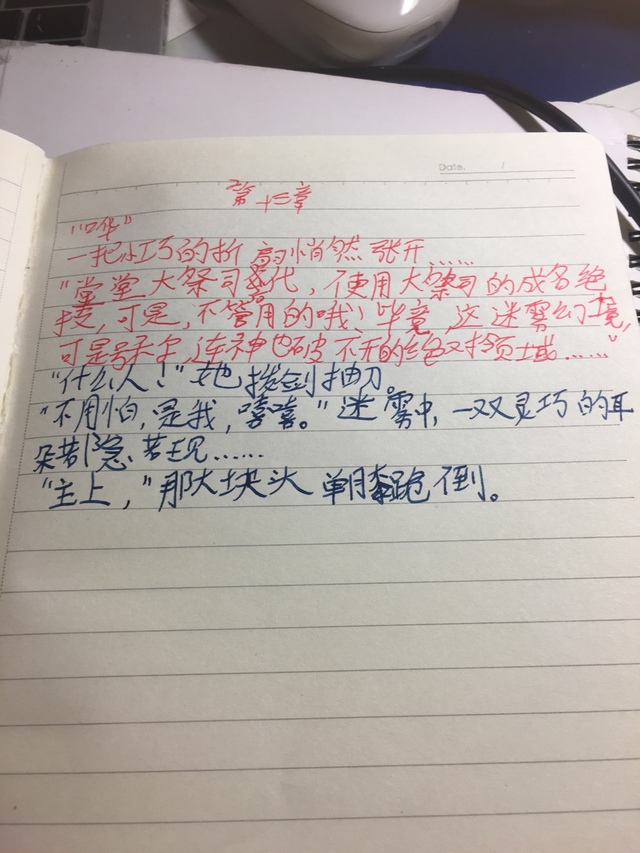 Date.
第十三章
“哗”
一把小巧的折扇悄然张开……
“堂堂大祭司一代，不使用大祭司的成名绝
技，可是，不管用的哦！毕竟，这迷雾幻境，
可是号称连神也破不开的绝对领域……”
“什么人！”她拔剑抽刀。
“不用怕，是我，嘻嘻。”迷雾中，一双灵巧的耳
朵若隐若现……
“主上，”那大块头单膝跪倒。